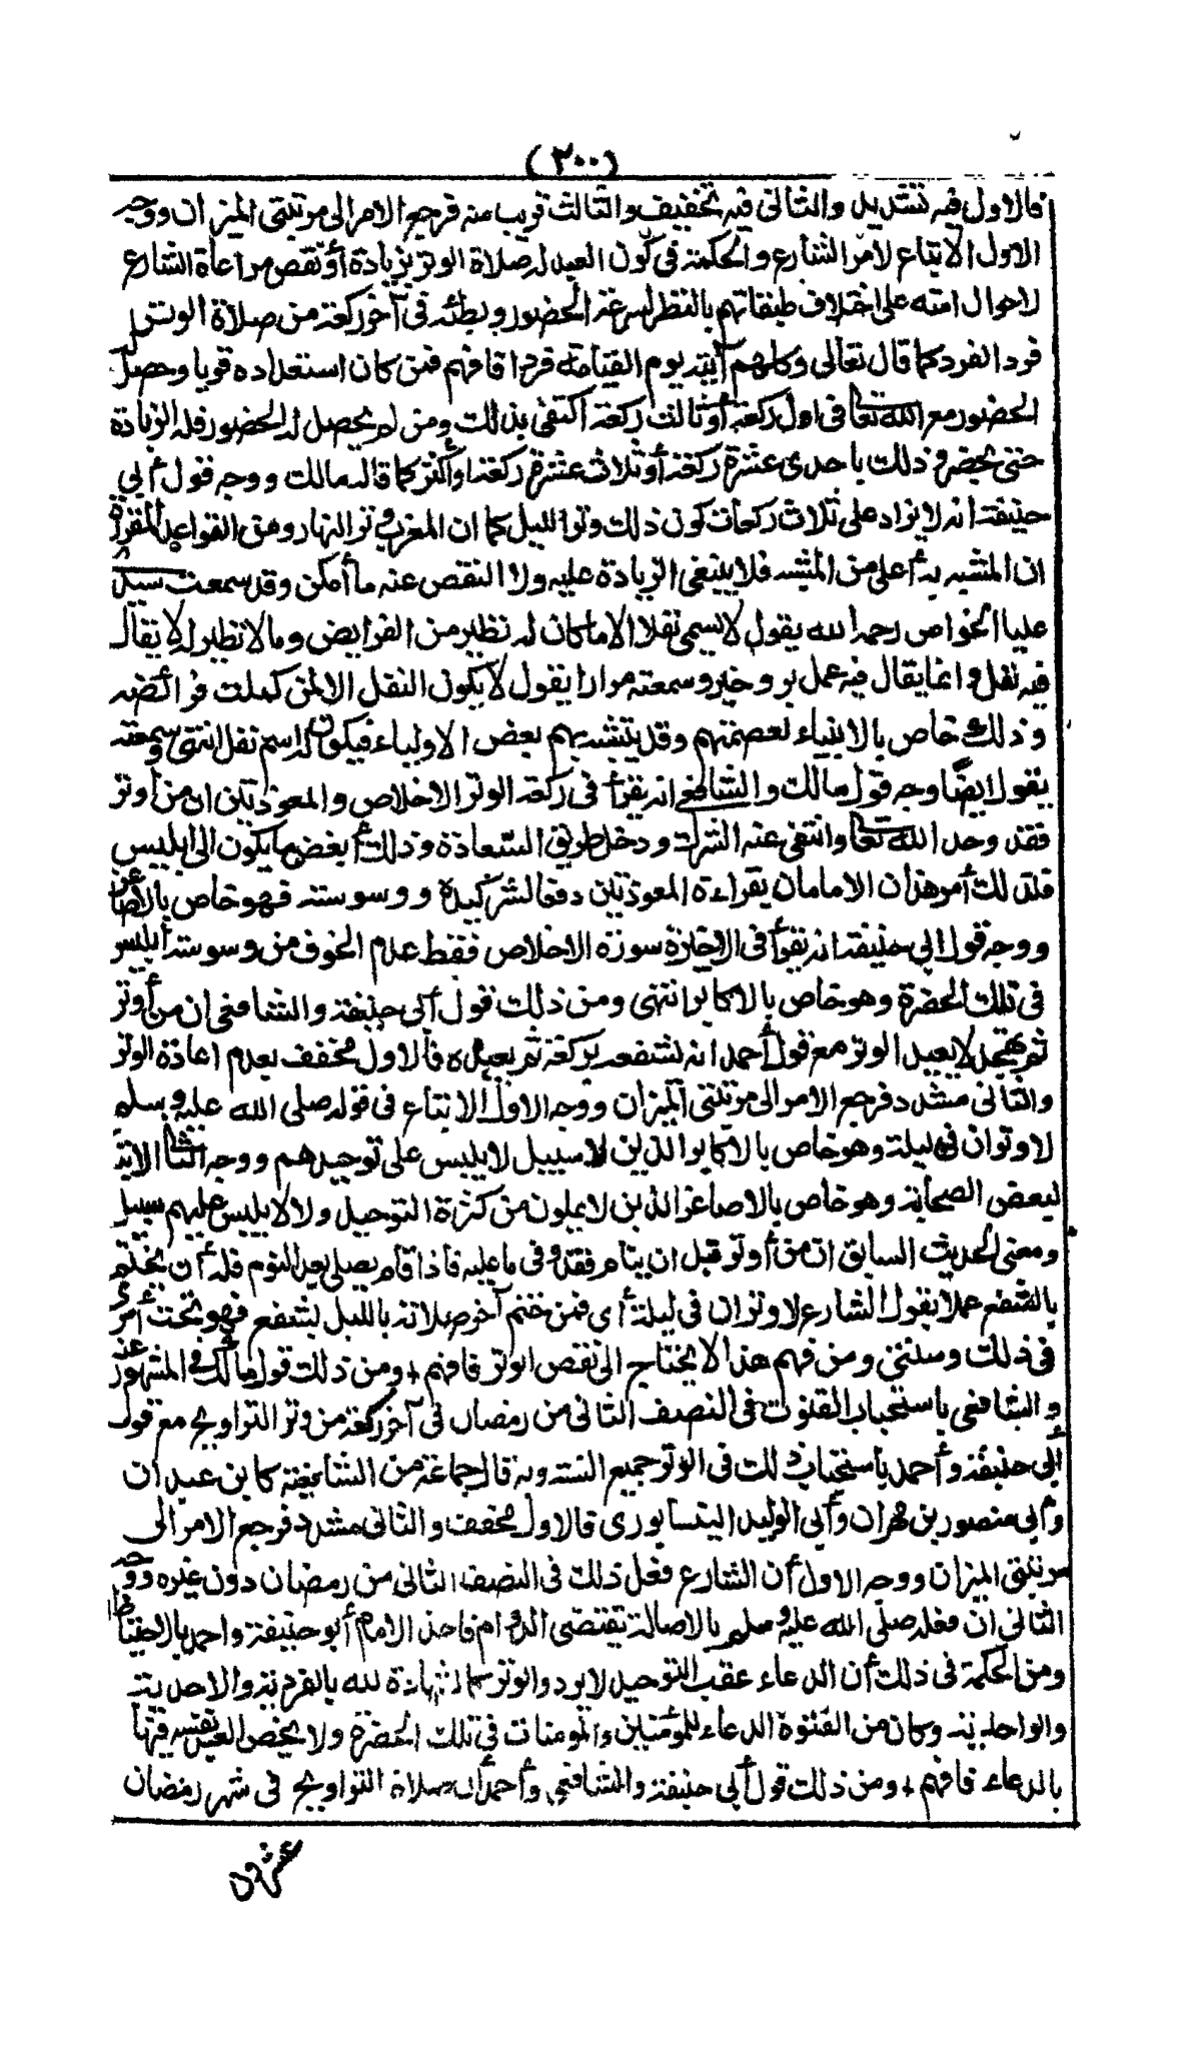 (٣٠٠)
فالاول فيه تشديد والثانى فيه تخفيف والثالث قريب منه فرجع الامر الى مرتبتى الميزان ووجه
الاول الاتباع لامر الشارع والحكمة فى كون العبد له صلاة الوتر بزيادة أو نقص مراعاة الشارع
لاحوال امته على اختلاف طبقاتهم بالنظر لسرعة الحضور وبطئه فى آخر ركعة من صلاة الوتر
فرد الفرد كما قال تعالى وكلهم آتيه يوم القيامة فردا فافهم فمن كان استعداده قويا وحصل له
الحضور مع الله تعا فى اول ركعة أو ثالث ركعة اكتفى بذلك ومن لم يحصل له الحضور فله الزيادة
حتى يحضر وذلك باحدى عشرة ركعة أو ثلاث عشرة ركعة أو أكثر كما قاله مالك ووجه قول أبى
حنيفة انه لا يزاد على ثلاث ركعات كون ذلك وتر الليل كما ان المغرب وتر النهار ومن القواعد المقررة
ان المشبه به أعلى من المشبه فلا ينبغى الزيادة عليه ولا النقص عنه ما أمكن وقد سمعت سيدى
عليا الخواص رحمه الله يقول لا يسمى نفلا الا ما كان له نظير من الفرايض وما لا نظير له لا يقال
فيه نفل وانما يقال فيه عمل بر وخير وسمعته مرارا يقول لا يكون النفل الا لمن كملت فرائضه
وذلك خاص بالانبياء لعصمتهم وقد يتشبه بهم بعض الاولياء فيكون له اسم نفل انتهى وسمعته
يقول ايضا وجه قول مالك والشافعى انه يقرأ فى ركعة الوتر الاخلاص والمعوذتين ان من أوتر
فقد وحد الله تعا وانتفى عنه الشرك ودخل طريق السعادة وذلك أبغض ما يكون الى ابليس
فلذلك أمر هذان الامامان بقراءة المعوذتين دفعا لشر كيده ووسوسته فهو خاص بالأصاغر
ووجه قول ابى حنيفة انه يقرأ فى الاخيرة سورة الاخلاص فقط عدم الخوف من وسوسة ابليس
فى تلك الحضرة وهو خاص بالاكابر انتهى ومن ذلك قول أبى حنيفة والشافعى ان من أوتر
ثم تهجد لا يعيد الوتر مع قول أحمد انه يشفعه بركعة ثم يعيده فالاول مخفف بعدم اعادة الوتر
والثانى مشدد فرجع الامر الى مرتبتى الميزان ووجه الاول الاتباع فى قوله صلى الله عليه وسلم
لا وتران فى ليلة وهو خاص بالاكابر الذين لا سبيل لابليس على توحيدهم ووجه الثا الاتباع
لبعض الصحابة وهو خاص بالاصاغر الذين لا يملون من كثرة التوحيد ولا لابليس عليهم سبيل
ومعنى الحديث السابق ان من أوتر قبل ان ينام فقد وفى ما عليه فاذا قام يصلى بعد النوم فله أن يختم
بالشفع عملا بقول الشارع لا وتران فى ليلة أى فمن ختم آخر صلاته بالليل بشفع فهو تحت أمرى
فى ذلك وسنتى ومن فهم هذا لا يحتاج الى نقض الوتر فافهم + ومن ذلك قول مالك فى المشهور عنه
والشافعى باستحباب القنوت فى النصف الثانى من رمضان فى آخر ركعة من وتر التراويح مع قول
أبى حنيفة وأحمد باستحباب ذلك فى الوتر جميع السنة وبه قال جماعة من الشافعية كابن عبدان
وأبى منصور بن مهران وأبى الوليد النيسابورى فالاول مخفف والثانى مشدد فرجع الامر الى
مرتبتى الميزان ووجه الاول أن الشارع فعل ذلك فى النصف الثانى من رمضان دون غيره ووجه
الثانى ان فعله صلى الله عليه وسلم بالاصالة يقتضى الدوام فاخذ الامام أبو حنيفة واحمد بالاحتياط
ومن الحكمة فى ذلك أن الدعاء عقب التوحيد لا يرد والوتر كالشهادة لله بالفردية والاحدية
والواحدية وكان من الفتوة الدعاء للمؤمنين والمؤمنات فى تلك الحضرة ولا يخص العبد نفسه فيها
بالدعاء فافهم + ومن ذلك قول أبى حنيفة والشافعى وأحمد ان صلاة التراويح فى شهر رمضان
عشرون